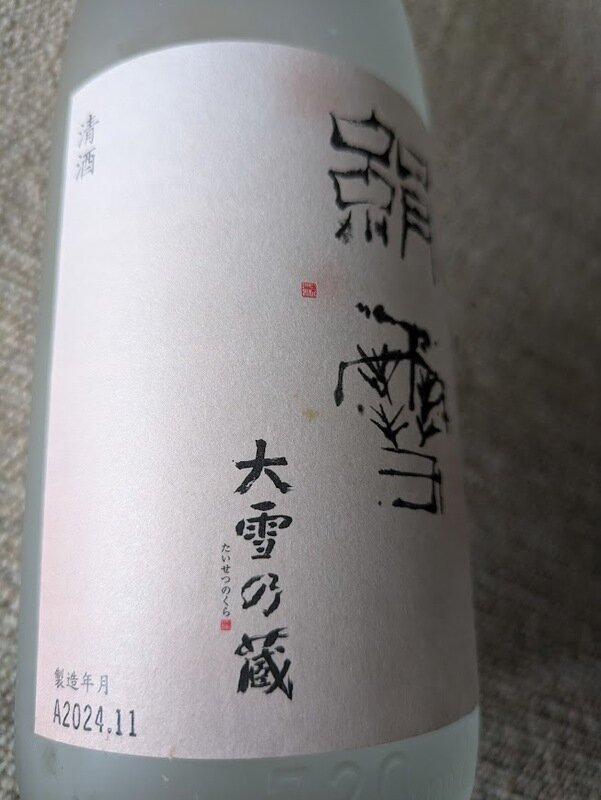 絹雪
大雪乃蔵
たいせつのくら
清酒
製造年月
A2024.11
720